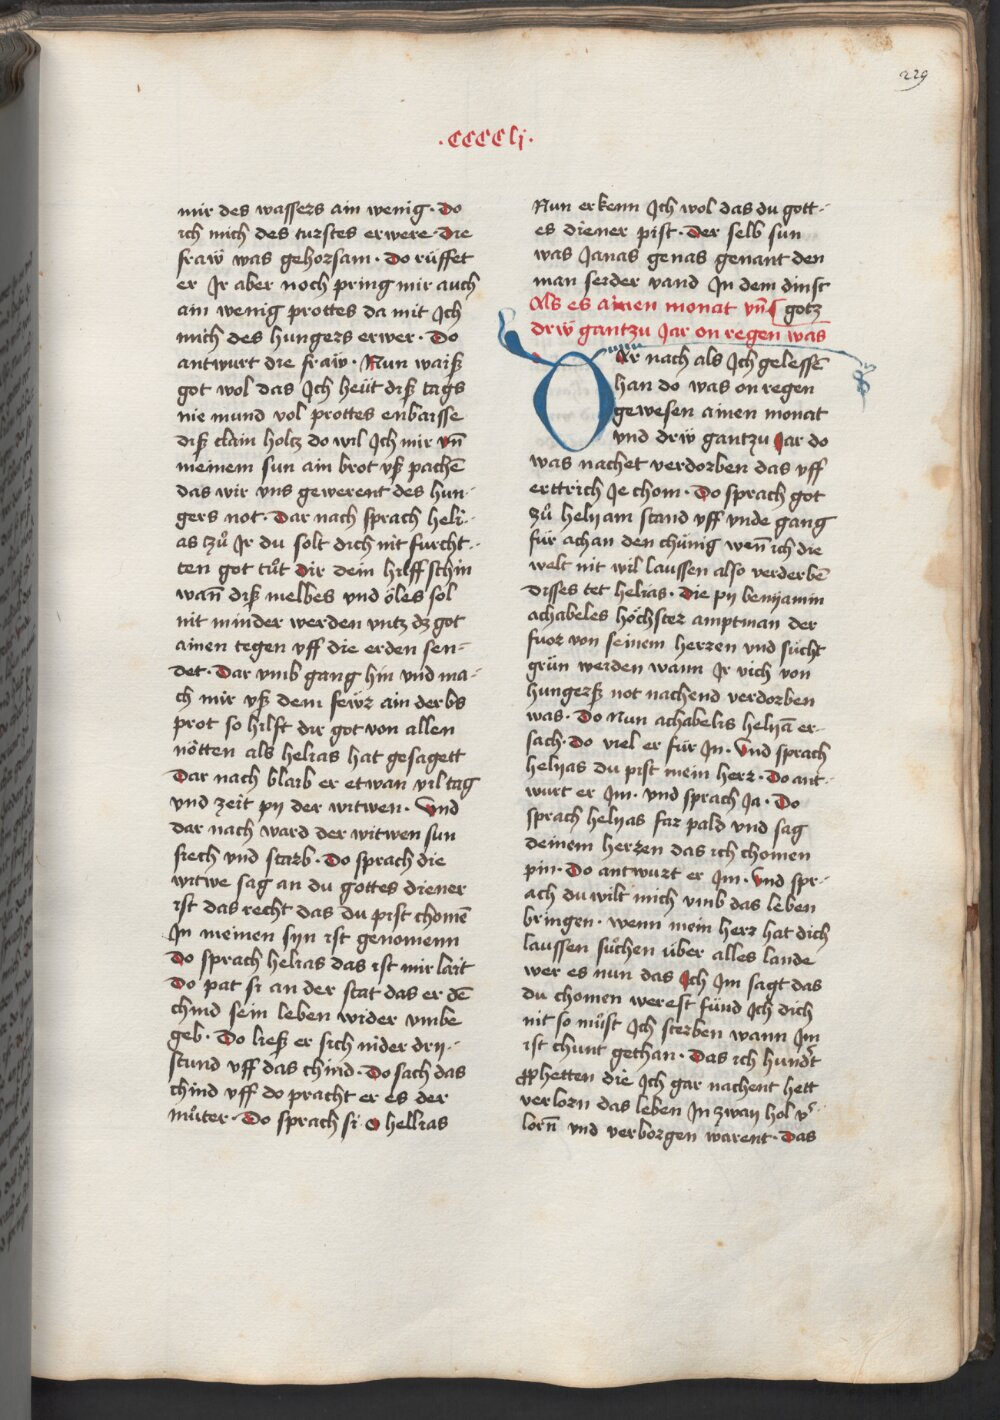 229
·CCCCLj·
mir des wassers ain wenig· Do
ich mich des turstes erwere· Die
fraẅ was gehorsam· Do rüffet
er Jr aber noch pring mir auch
ain wenig prottes da mit Jch
mich des hungers erwer· Do
antwurt die fraẅ· Nun waiß
got wol das Jch heüt diß tags
nie mund vol prottes enbaisse
diß clain holtz do wil Jch mir vn̄
meinem sun ain brot vß pachē
das wir vns gewerent des hun-
gers not· Dar nach sprach heli-
as tzů Jr du solt dich nit furcht-
ten got tůt dir dein hilff schin
wan̄ diß melbes vnd öles sol
nit minder werden vntz dz got
ainen regen vff die erden sen-
det· Dar vmb gang hin vnd ma-
ch mir vß dem fewr ain derbs
prot so hilft dir got von allen
nötten als helias hat gesagett
Dar nach blaib er etwan vil tag
vnd zeit pij der witwen· Vnd
dar nach ward der witwen sun
siech vnd starb· Do sprach die
witwe sag an du gottes diener
ist das recht das du pist chomē
Jn meinen syn ist genomenn
Do sprach helias das ist mir lait
Do pat si an der stat das er dē
chind sein leben wider vmbe
geb· Do ließ er sich nider drij-
stund vff das chind· Do sach das
chind vff do pracht er es der
můter· Do sprach si O hellias
Nun erkenn Jch wol das du gott-
es diener pist· Der selb sun
was Janas genas genant den
man seider vand Jn dem dinst
Als es ainen monat vn̄ gotz
drẅ gantzu Jar on regen was
Dar nach als Jch gelessē
han do was on regen
gewesen ainen monat
vnd drẅ gantzu Jar do
was nachet verdorben das vff
erttrich Je chom· Do sprach got
zů helyam stand vff vnde gang
für achan den chünig wen̄ ich die
welt nit wil laussen also verderbē
Disses tet helias· Die pij benyamin
achabeles höchster amptman der
fuor von seinem herzen vnd sůcht
grün werden wann Jr vich von
hungerß not nachend verdorben
was· Do Nun achabelis helyā er-
sach· Do viel er für Jn· Vnd sprach
helyas du pist mein herz· Do ant-
wurt er Jm· vnd sprach Ja· Do
sprach helyas far pald vnd sag
deinem herzen das ich chomen
pin· Do antwurt er Jm· Vnd spr-
ach du wilt mich vmb das leben
bringen· wenn mein herz hat dich
laussen sůchen über alles lande
wer es nun das Jch Jm sagt das
du chomen werest fünd Jch dich
nit so můst Jch sterben wann Jm
ist chunt gethan· Das ich hundrt
prophetten die Jch gar nachent hett
verlorn das leben Jn zway hol vr-
lorn̄ vnd verborgen warent· Das